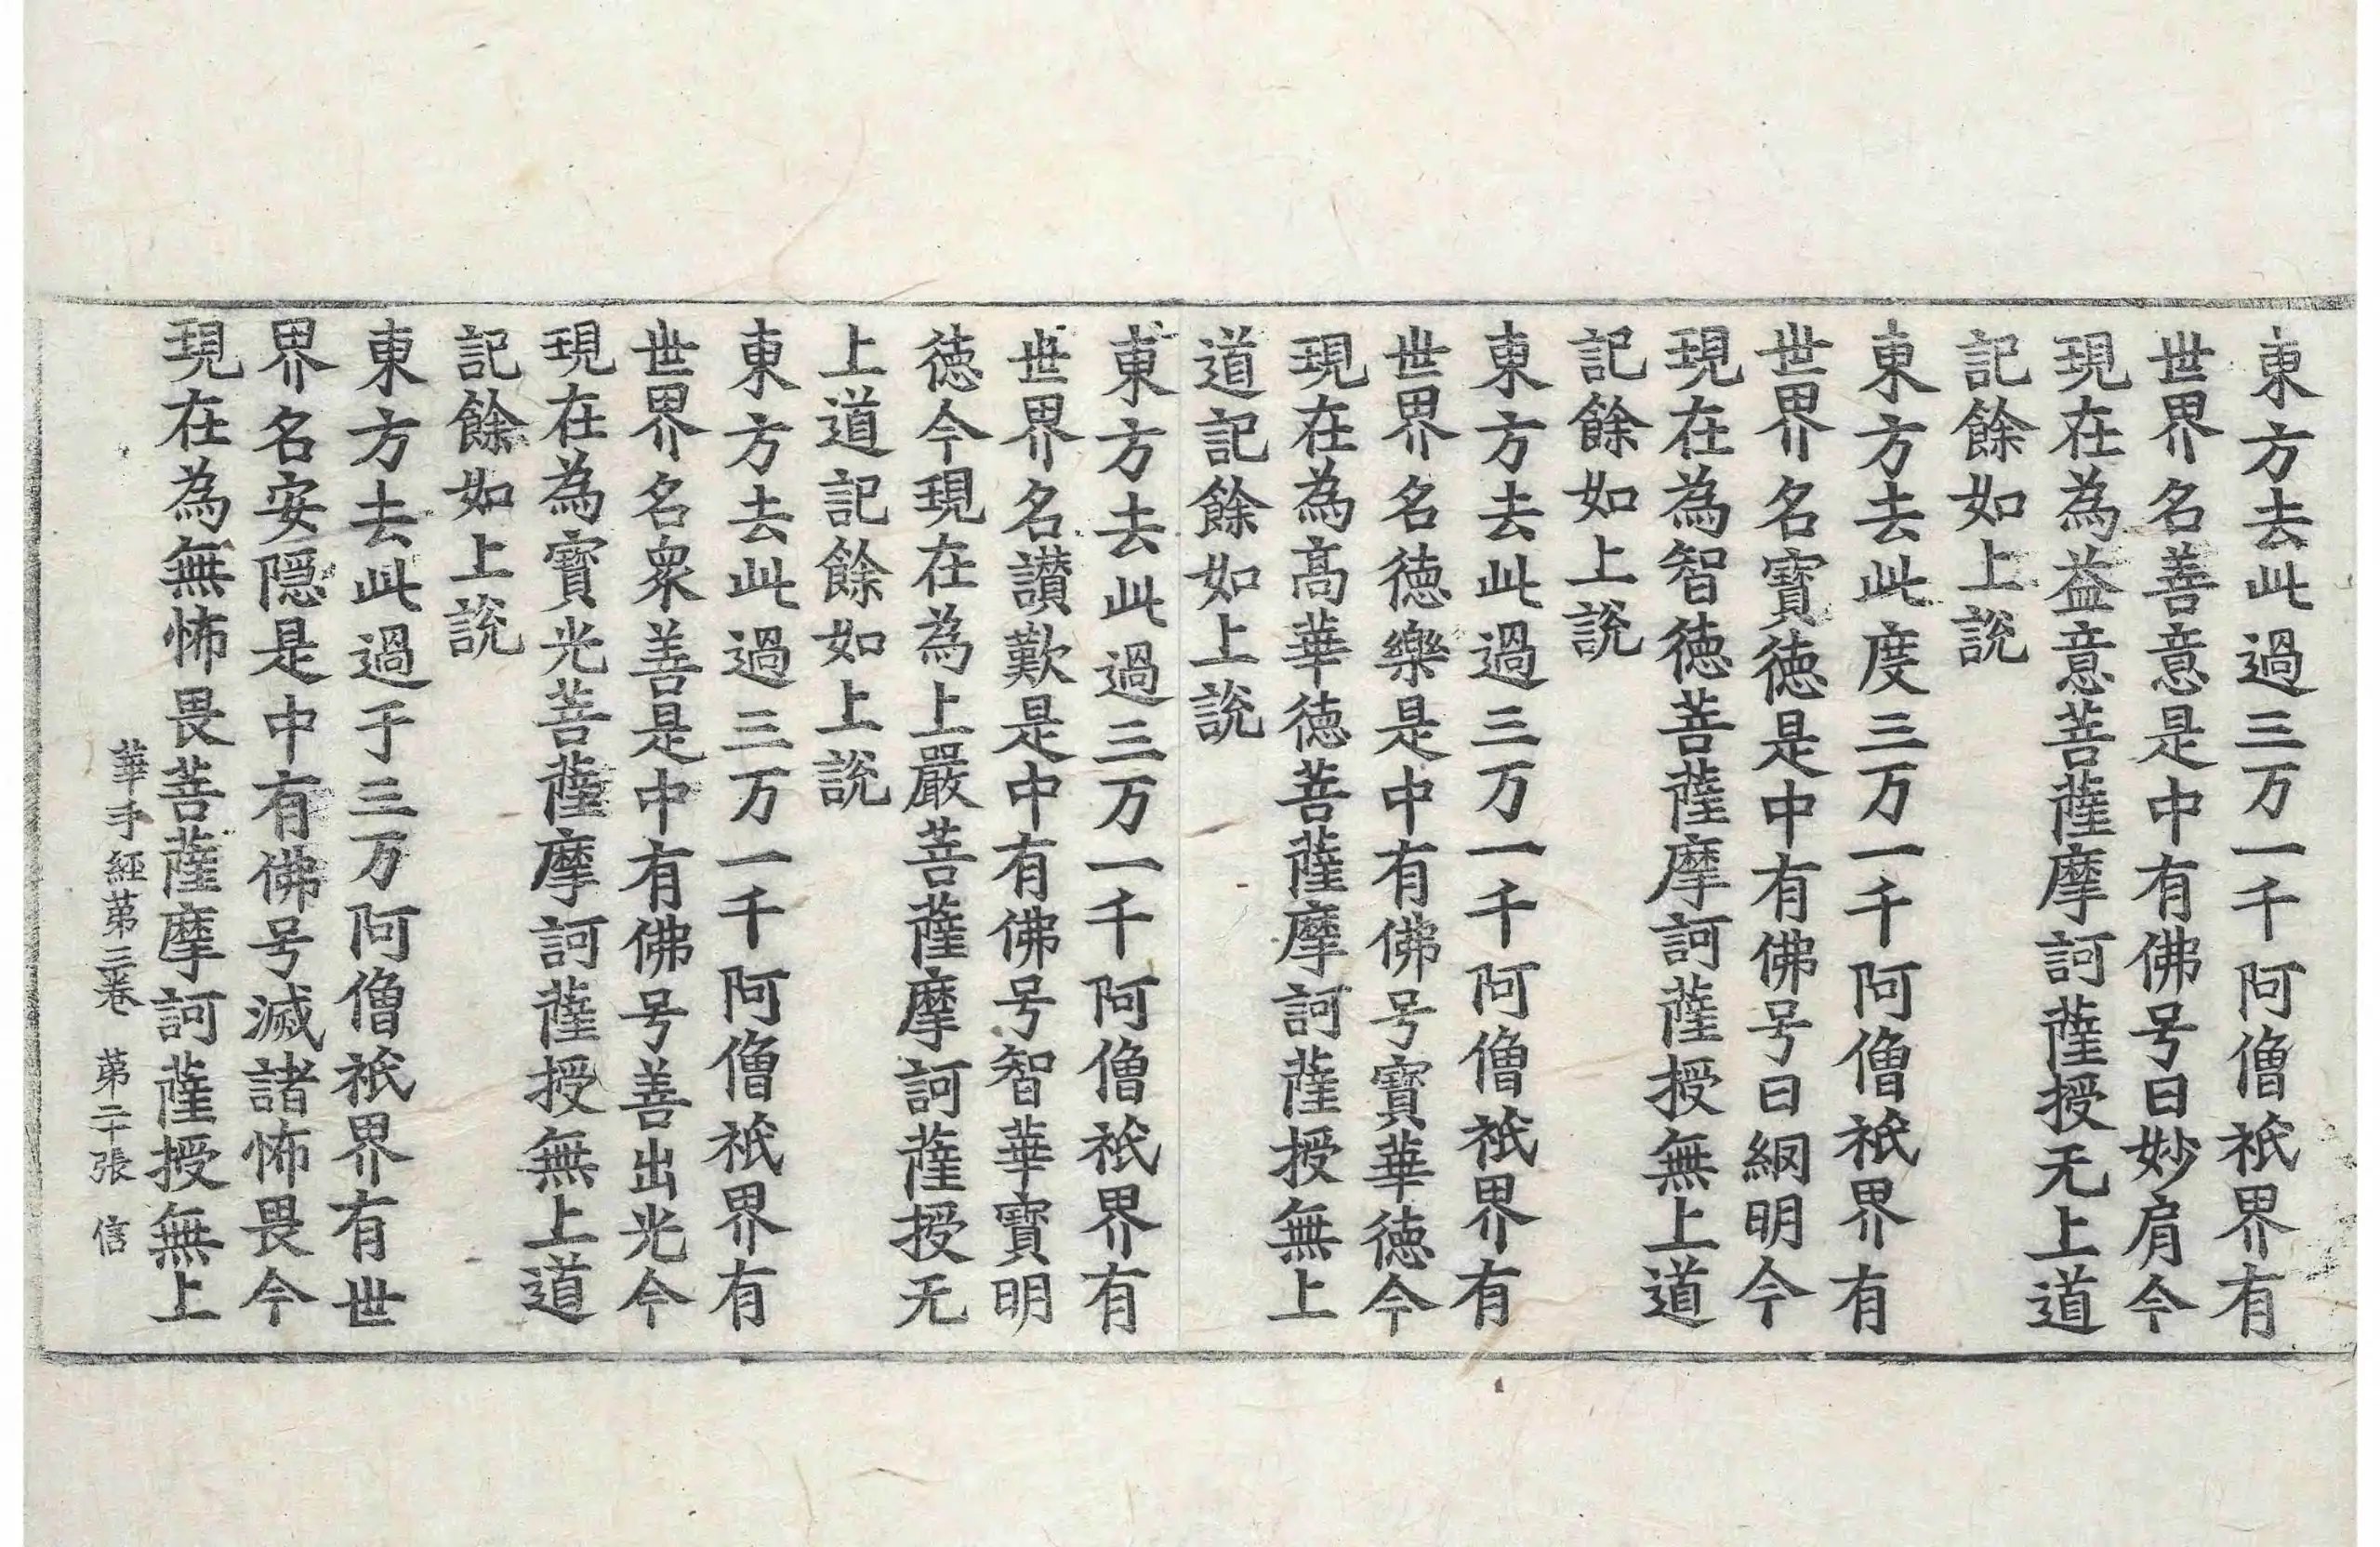 東方去此過三万一千阿僧祇界有
世界名善意是中有佛号曰妙肩今
現在為益意菩薩摩訶薩授无上道
記餘如上說
東方去此度三万一千阿僧祇界有
世界名寶德是中有佛号曰網明今
現在為智德菩薩摩訶薩授無上道
記餘如上說
東方去此過三万一千阿僧祇界有
世界名德樂是中有佛号寶華德今
現在為髙華德菩薩摩訶薩授無上
道記餘如上說
東方去此過三万一千阿僧祇界有
世界名讃歎是中有佛号智華寶明
德今現在為上嚴菩薩摩訶薩授无
上道記餘如上說
東方去此過三万一千阿僧祇界有
世界名衆善是中有佛号善出光今
現在為寶光菩薩摩訶薩授無上道
記餘如上說
東方去此過于三万阿僧祇界有世
界名安隱是中有佛号滅諸怖畏今
現在為無怖畏菩薩摩訶薩授無上
華手經第三卷 第二十張 信